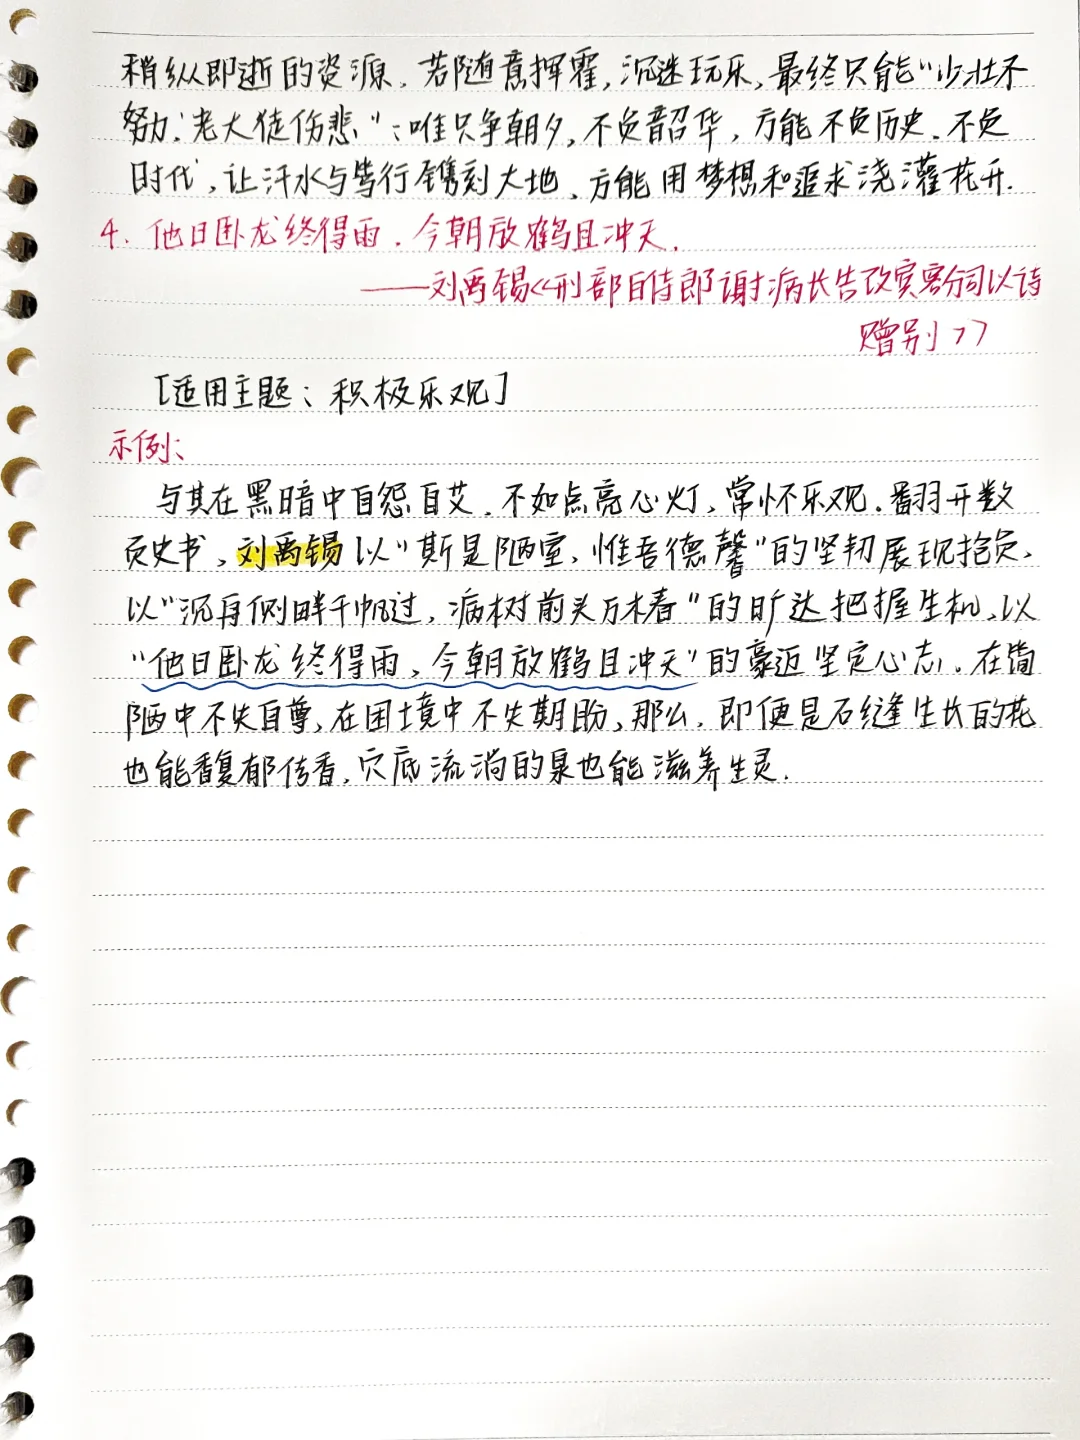 稍纵即逝的资源，若随意挥霍，沉迷玩乐，最终只能"少壮不
努力，老大徒伤悲"；唯只争朝夕，不负韶华，方能不负历史、不负
时代，让汗水与笃行镌刻大地、方能用梦想和追求浇灌花开.
4. 他日卧龙终得雨，今朝放鹤且冲天.
——刘禹锡《刑部白侍郎谢病长告改宾客分司以诗
赠别》
[适用主题：积极乐观]
示例：
与其在黑暗中自怨自艾，不如点亮心灯，常怀乐观. 翻开数
页史书，刘禹锡以"斯是陋室，惟吾德馨"的坚韧展现抱负，
以"沉舟侧畔千帆过，病树前头万木春"的旷达把握生机，以
"他日卧龙终得雨，今朝放鹤且冲天"的豪迈坚定心志. 在简
陋中不失自尊，在困境中不失期盼，那么，即便是石缝生长的花
也能馥郁传香，穴底流淌的泉也能滋养生灵.